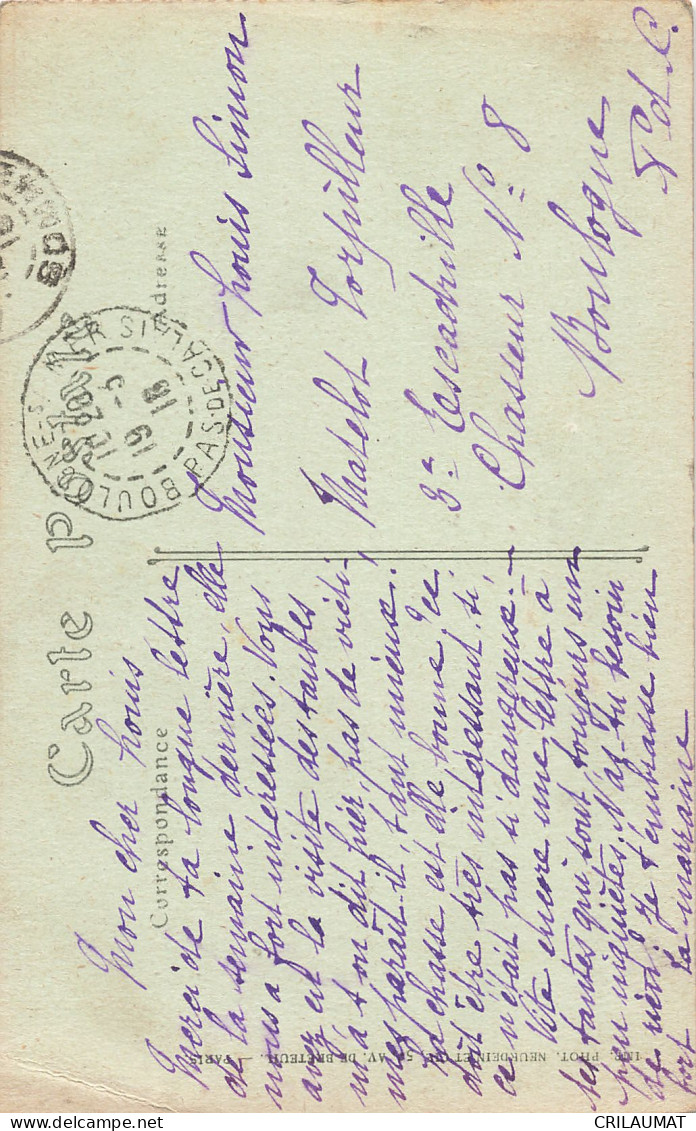 Carte Postale
Correspondance
Adresse
Mon cher Louis
Merci de ta longue lettre
de la semaine dernière, elle
nous a fort intéressées. Vous
avez eu la visite des taubes
m'a t'on dit hier, pas de victi-
mes paraît-il, tant mieux.
La chasse est elle bonne, ce
doit être très intéressant si
ce n'était pas si dangereux. -
Vite encore une lettre à
tes tantes qui sont toujours un
peu inquiètes. N'as-tu besoin
de rien? Je t'embrasse bien
fort ta marraine
Monsieur Louis Simon
Matelot Torpilleur
3e Escadrille
Chasseur No 8
Boulogne
P. d. C.
BOULOGNE-S-MER
PAS-DE-CALAIS
19 - 5
18
IMP. PHOT. NEURDEIN ET CIE, 52, AV. DE BRETEUIL. — PARIS
CRILAUMAT